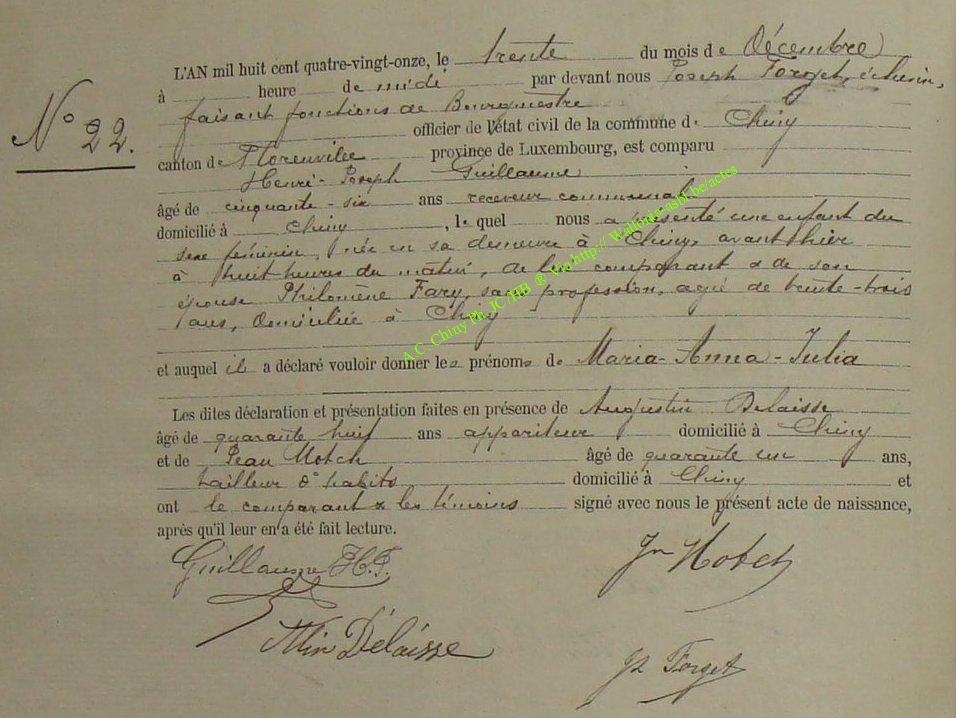 L'AN mil huit cent quatre-vingt-onze, le trente du mois de Décembre
à heure de midi par devant nous Joseph Forget, échevin,
faisant fonctions de Bourgmestre
N° 22.
officier de l'état civil de la commune d e Chiny
canton de Florenville province de Luxembourg, est comparu
Henri-Joseph Guillaume
âgé de cinquante-six ans receveur communal
domicilié à Chiny, le quel nous a présenté une enfant du
sexe féminin, née en sa demeure à Chiny, avant hier
à huit heures du matin, de lui comparant & de son
épouse Philomène Fary, sans profession, agée de trente-trois
ans, domiciliée à Chiny
et auquel il a déclaré vouloir donner les prénoms de Maria-Anna-Julia
Les dites déclaration et présentation faites en présence de Augustin Delaisse
âgé de quarante huit ans appariteur domicilié à Chiny
et de Jean Hotch âgé de quarante un ans,
tailleur d'habits domicilié à Chiny et
ont le comparant & les témoins signé avec nous le présent acte de naissance,
après qu'il leur en a été fait lecture.
Guillaume H.J.
Jn Hotch
Delaisse
Jh Forget
A.C- Chiny Ph. JC /HB @ Via http:// Wallonia-asbl.be/actes